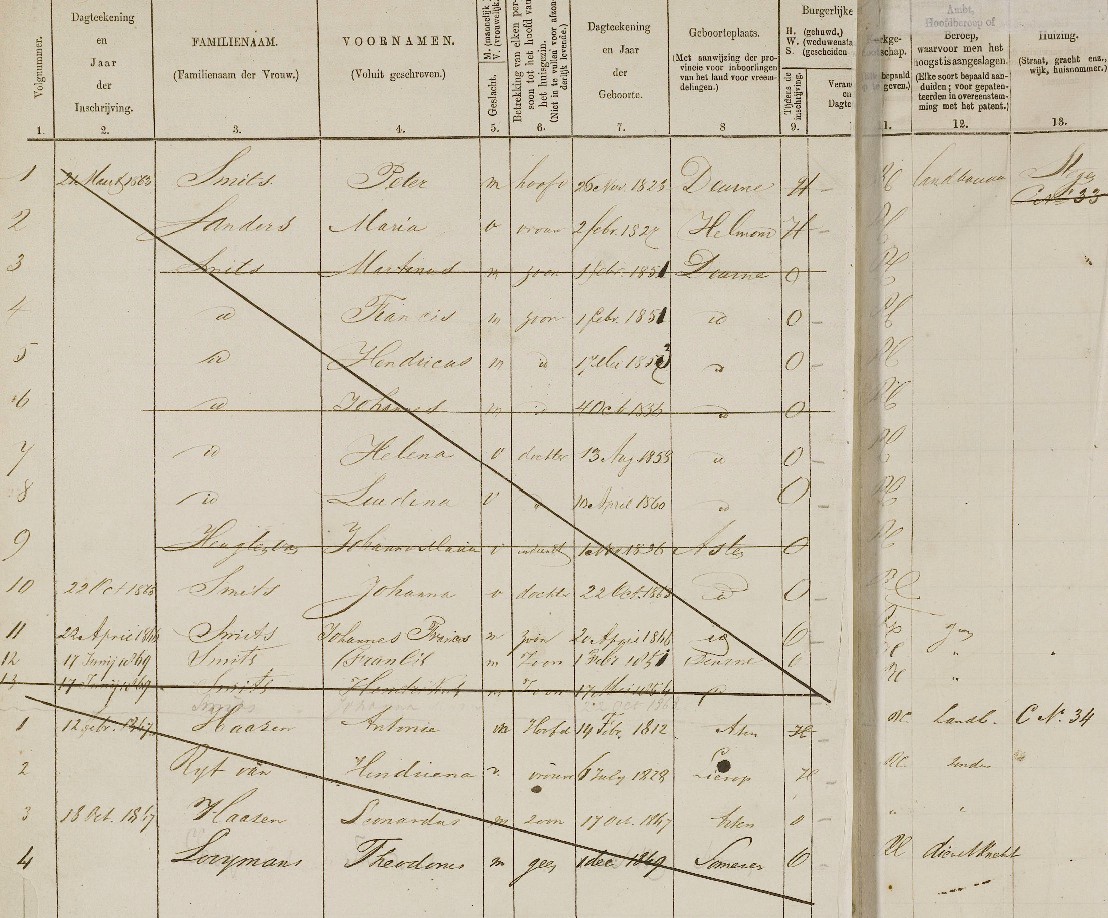 Volgnummer.
Dagteekening en Jaar der Inschrijving.
FAMILIENAAM.
(Familienaam der Vrouw.)
VOORNAMEN.
(Voluit geschreven.)
Geslacht. M. (mannelijk) V. (vrouwelijk)
Betrekking van elken persoon tot het hoofd van het huisgezin. (Niet in te vullen voor afzonderlijk levende.)
Dagteekening en Jaar der Geboorte.
Geboorteplaats.
(Met aanwijzing der provincie voor inboorlingen van het land voor vreemdelingen.)
Burgerlijke
H. (gehuwd,)
W. (weduwensta
S. (gescheiden
Tijdens de inschrijving.
Veran
en
Dagte
Ambt,
Hoofdberoep of
Beroep,
waarvoor men het hoogst is aangeslagen.
(Elke soort bepaald aanduiden; voor gepatenteerden in overeenstemming met het patent.)
Huizing.
(Straat, gracht enz., wijk, huisnummer.)
1. 2. 3. 4. 5. 6. 7. 8 9. 1. 12. 13.
1 21 Maart 1863 Smits Peter m hoofd 26 Nov 1823 Deurne H landbouw
2 Sanders Maria v vrouw 2 febr. 1827 Helmond H
3 Smits Martinus m zoon 1 febr. 1851 Deurne O
4 id Francis m zoon 1 febr. 1851 id O
5 id Hendricus m id O
6 id Johannes m id 4 Oct O
7 id Helena v dochter 13 Aug 1858 id O
8 id v April 1860 id O
9 Johanna Maria v 1836 Asten O
10 22 Oct 1863 Smits Johanna v dochter 22 Oct. 1863 id O
11 22 April 1866 Smits Johannes Francis m zoon 20 April 1866 id O
12 17 Junij 1869 Smits Francis m Zoon 1 Febr 1851 Deurne O
13 17 Junij 1869 Smits m Zoon 17 Mei
1 12 febr. 1847 Haasen Antonie m Hoofd 14 Feb. 1812 Asten H RC Landb. C No. 34
2 Ryt van Hendriena v. vrouw 6 July 1828 Lierop H RC zonder
3 18 Oct. 1847 Haasen Leonardus m zoon 17 Oct. 1847 Asten O "
4 Looymans Theodorus m 1 dec 1849 Someren O RC dienstknecht